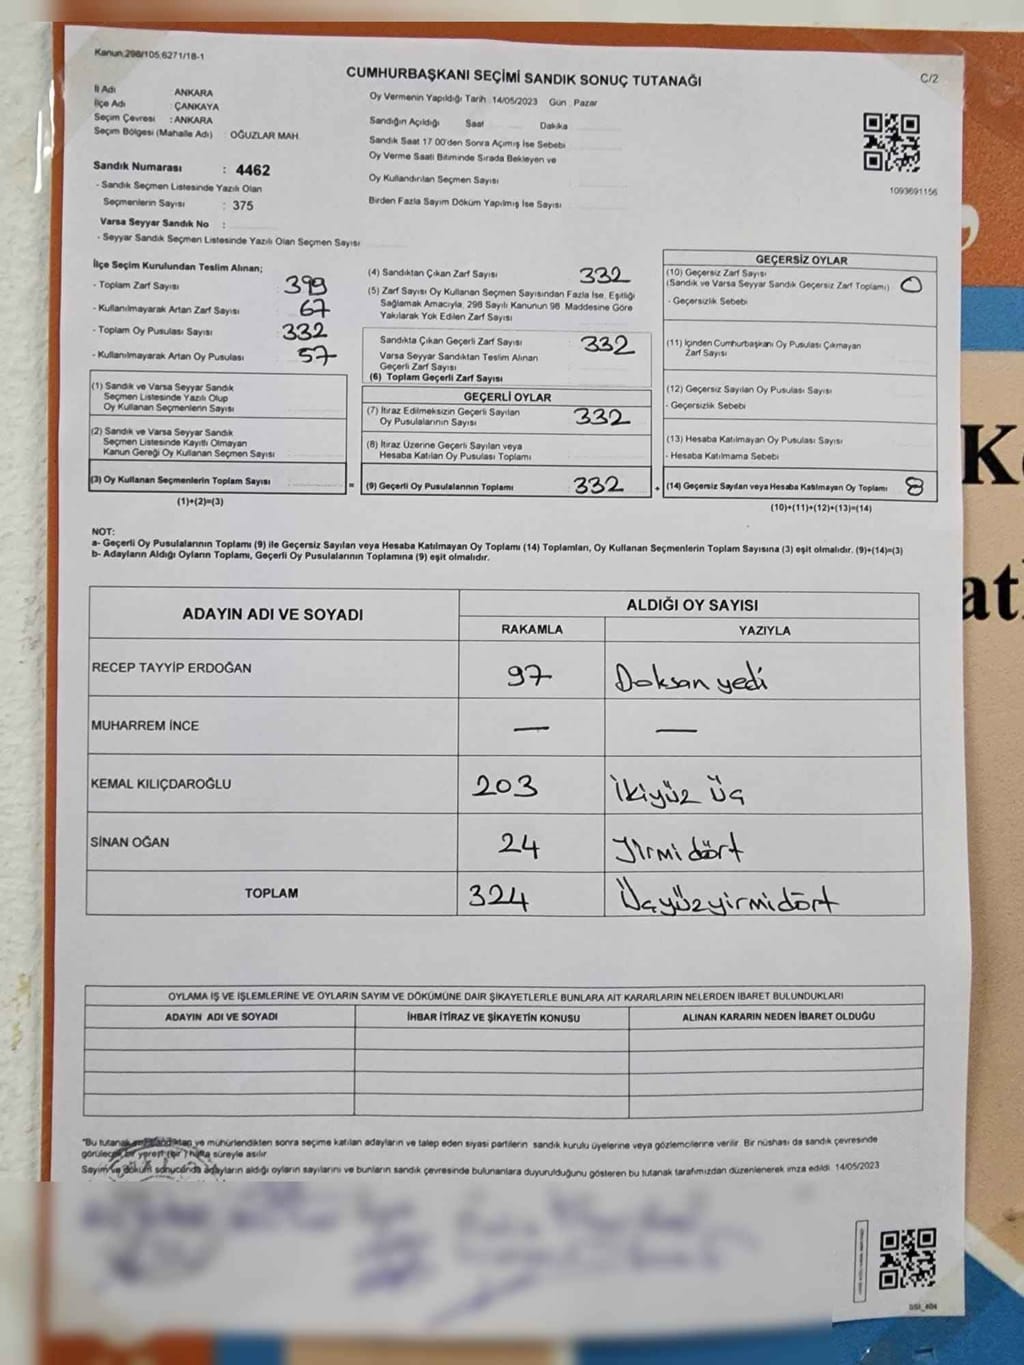 Kanun:298/105;6271/18-1
CUMHURBAŞKANI SEÇİMİ SANDIK SONUÇ TUTANAĞI
C/2
İl Adı ANKARA
İlçe Adı ÇANKAYA
Seçim Çevresi : ANKARA
Seçim Bölgesi (Mahalle Adı) : OĞUZLAR MAH.
Oy Vermenin Yapıldığı Tarih :14/05/2023 Gün : Pazar
Sandığın Açıldığı Saat Dakika
Sandık Saat 17.00'den Sonra Açımış İse Sebebi
Oy Verme Saati Bitiminde Sırada Bekleyen ve
Oy Kullandırılan Seçmen Sayısı
Birden Fazla Sayım Döküm Yapılmış İse Sayısı
1093691156
Sandık Numarası : 4462
- Sandık Seçmen Listesinde Yazılı Olan
Seçmenlerin Sayısı : 375
Varsa Seyyar Sandık No :
- Seyyar Sandık Seçmen Listesinde Yazılı Olan Seçmen Sayısı
İlçe Seçim Kurulundan Teslim Alınan;
- Toplam Zarf Sayısı 399
- Kullanılmayarak Artan Zarf Sayısı 67
- Toplam Oy Pusulası Sayısı 332
- Kullanılmayarak Artan Oy Pusulası 57
(1) Sandık ve Varsa Seyyar Sandık
Seçmen Listesinde Yazılı Olup
Oy Kullanan Seçmenlerin Sayısı
(2) Sandık ve Varsa Seyyar Sandık
Seçmen Listesinde Kayıtlı Olmayan
Kanun Gereği Oy Kullanan Seçmen Sayısı
(3) Oy Kullanan Seçmenlerin Toplam Sayısı =
(1)+(2)=(3)
(4) Sandıktan Çıkan Zarf Sayısı 332
(5) Zarf Sayısı Oy Kullanan Seçmen Sayısından Fazla İse, Eşitliği
Sağlamak Amacıyla, 298 Sayılı Kanunun 98. Maddesine Göre
Yakılarak Yok Edilen Zarf Sayısı
Sandıkta Çıkan Geçerli Zarf Sayısı 332
Varsa Seyyar Sandıktan Teslim Alınan
Geçerli Zarf Sayısı
(6) Toplam Geçerli Zarf Sayısı
GEÇERLİ OYLAR
(7) İtiraz Edilmeksizin Geçerli Sayılan
Oy Pusulalarının Sayısı 332
(8) İtiraz Üzerine Geçerli Sayılan veya
Hesaba Katılan Oy Pusulası Toplamı
(9) Geçerli Oy Pusulalarının Toplamı 332 +
GEÇERSİZ OYLAR
(10) Geçersiz Zarf Sayısı
(Sandık ve Varsa Seyyar Sandık Geçersiz Zarf Toplamı) 0
- Geçersizlik Sebebi
(11) İçinden Cumhurbaşkanı Oy Pusulası Çıkmayan
Zarf Sayısı
(12) Geçersiz Sayılan Oy Pusulası Sayısı
- Geçersizlik Sebebi
(13) Hesaba Katılmayan Oy Pusulası Sayısı
- Hesaba Katılmama Sebebi
(14) Geçersiz Sayılan veya Hesaba Katılmayan Oy Toplamı 8
(10)+(11)+(12)+(13)=(14)
NOT:
a- Geçerli Oy Pusulalarının Toplamı (9) ile Geçersiz Sayılan veya Hesaba Katılmayan Oy Toplamı (14) Toplamları, Oy Kullanan Seçmenlerin Toplam Sayısına (3) eşit olmalıdır. (9)+(14)=(3)
b- Adayların Aldığı Oyların Toplamı, Geçerli Oy Pusulalarının Toplamına (9) eşit olmalıdır.
ADAYIN ADI VE SOYADI ALDIĞI OY SAYISI
RAKAMLA YAZIYLA
RECEP TAYYİP ERDOĞAN 97 Doksan yedi
MUHARREM İNCE — —
KEMAL KILIÇDAROĞLU 203 İkiyüz Üç
SİNAN OĞAN 24 Yirmi dört
TOPLAM 324 Üçyüzyirmidört
OYLAMA İŞ VE İŞLEMLERİNE VE OYLARIN SAYIM VE DÖKÜMÜNE DAİR ŞİKAYETLERLE BUNLARA AİT KARARLARIN NELERDEN İBARET BULUNDUKLARI
ADAYIN ADI VE SOYADI İHBAR İTİRAZ VE ŞİKAYETİN KONUSU ALINAN KARARIN NEDEN İBARET OLDUĞU
"Bu tutanak ve mühürlendikten sonra seçime katılan adayların ve talep eden siyasi partilerin sandık kurulu üyelerine veya gözlemcilerine verilir. Bir nüshası da sandık çevresinde
görülecek bir yerde (bir) hafta süreyle asılır
Sayım ve döküm sonucunda adayların aldığı oyların sayılarını ve bunların sandık çevresinde bulunanlara duyurulduğunu gösteren bu tutanak tarafımızdan düzenlenerek imza edildi. 14/05/2023